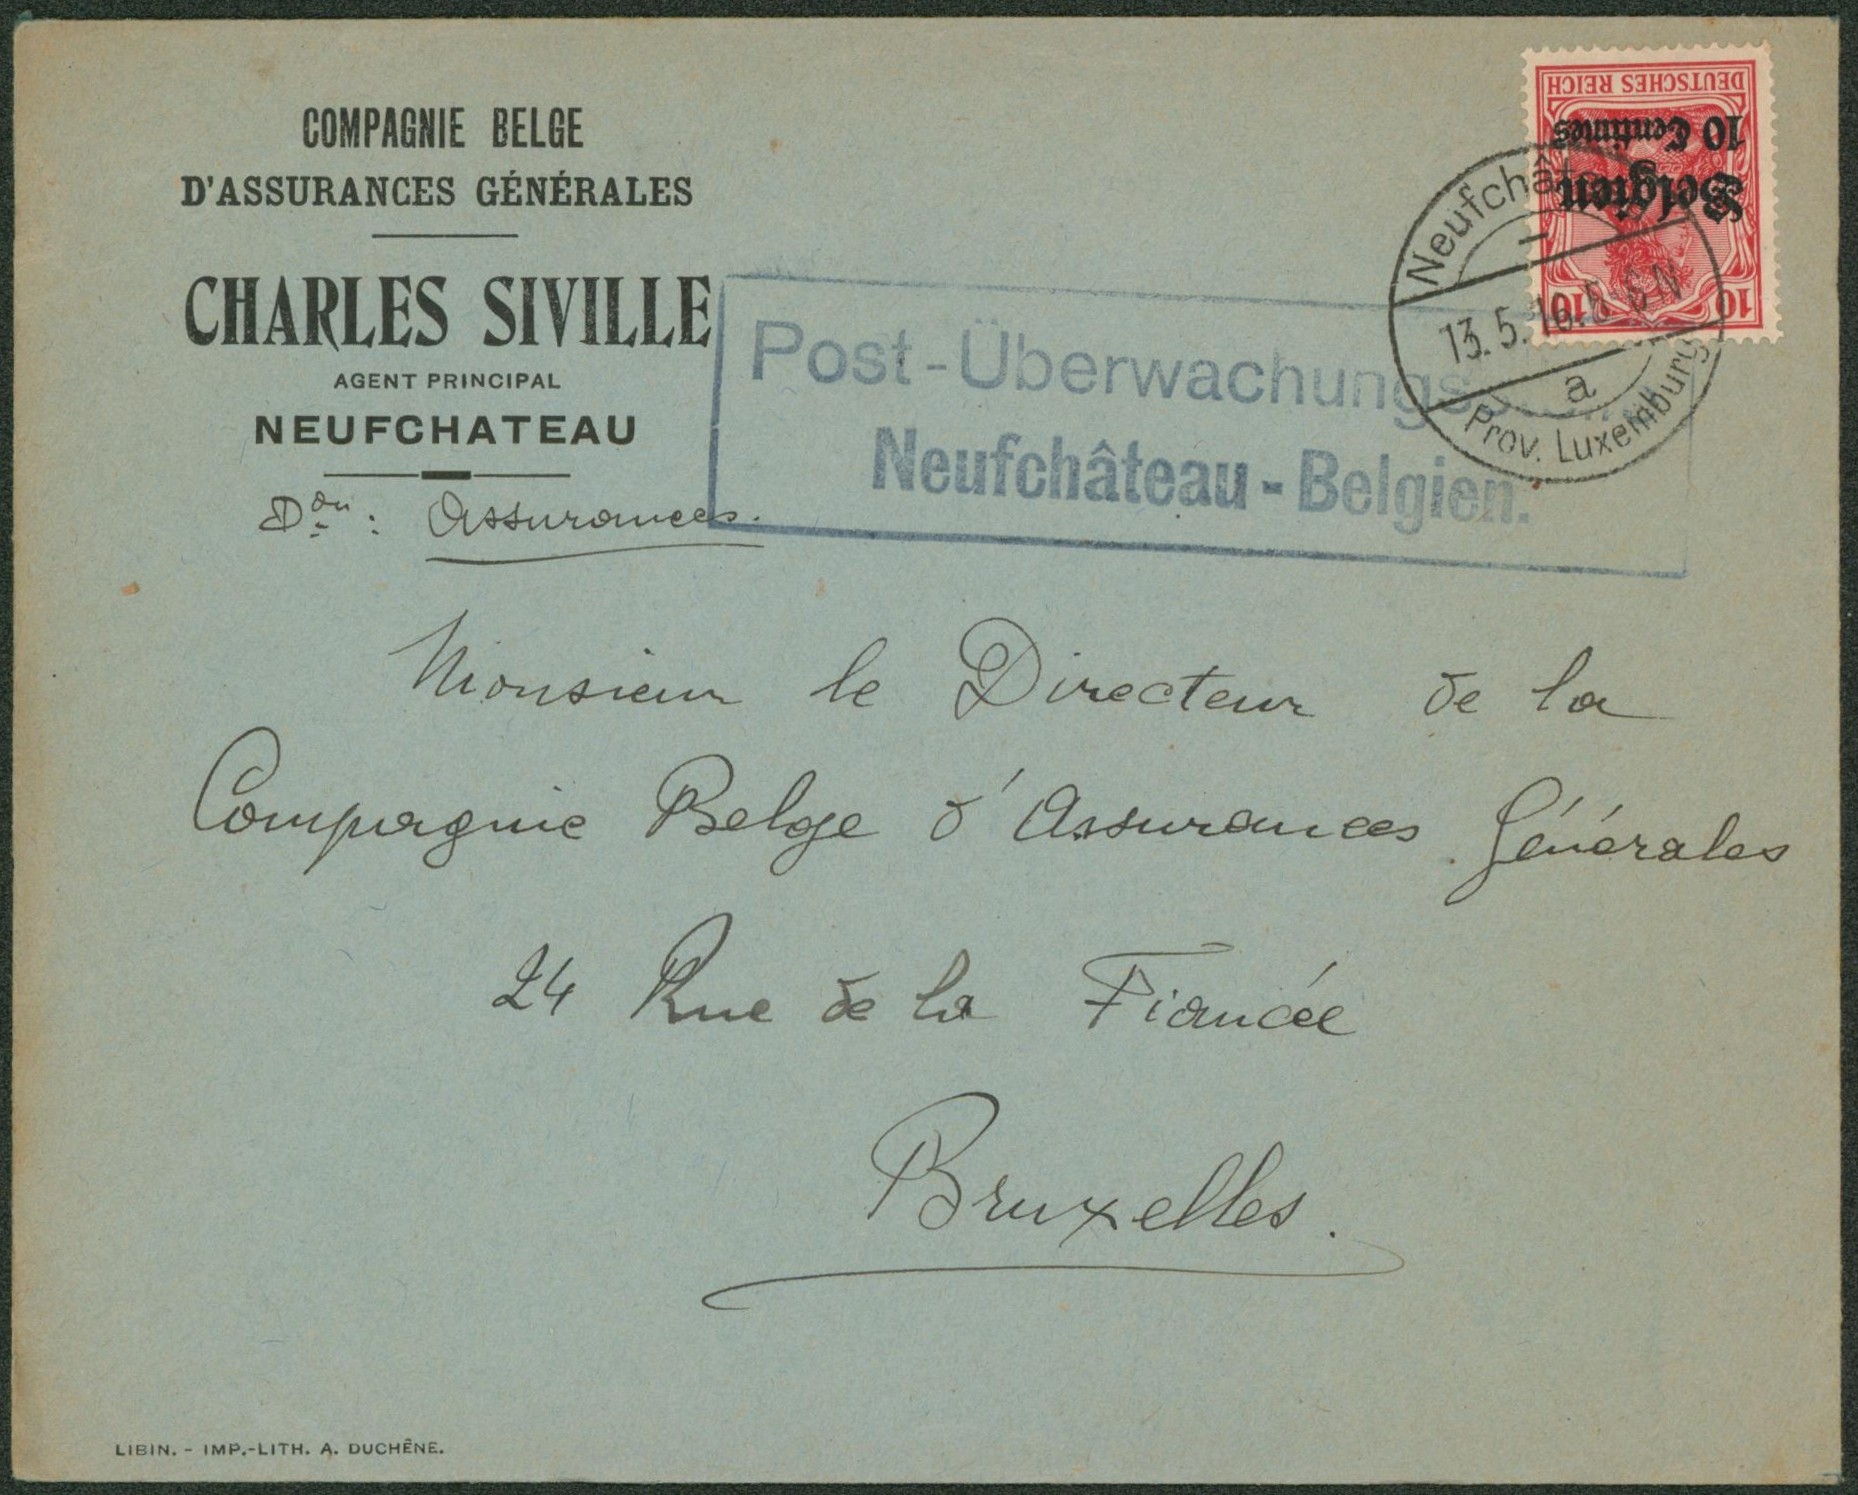 COMPAGNIE BELGE
D'ASSURANCES GÉNÉRALES
CHARLES SIVILLE
AGENT PRINCIPAL
NEUFCHATEAU
Don : Assurances.
DEUTSCHES REICH
10 Centimes
Belgien
10 10
13.5.16. 5-6 N
a
Prov. Luxemburg
Post-Überwachungs
Neufchâteau - Belgien.
Monsieur le Directeur de la
Compagnie Belge d'Assurances Générales
24 Rue de la Fiancée
Bruxelles.
LIBIN. - IMP.-LITH. A. DUCHÊNE.